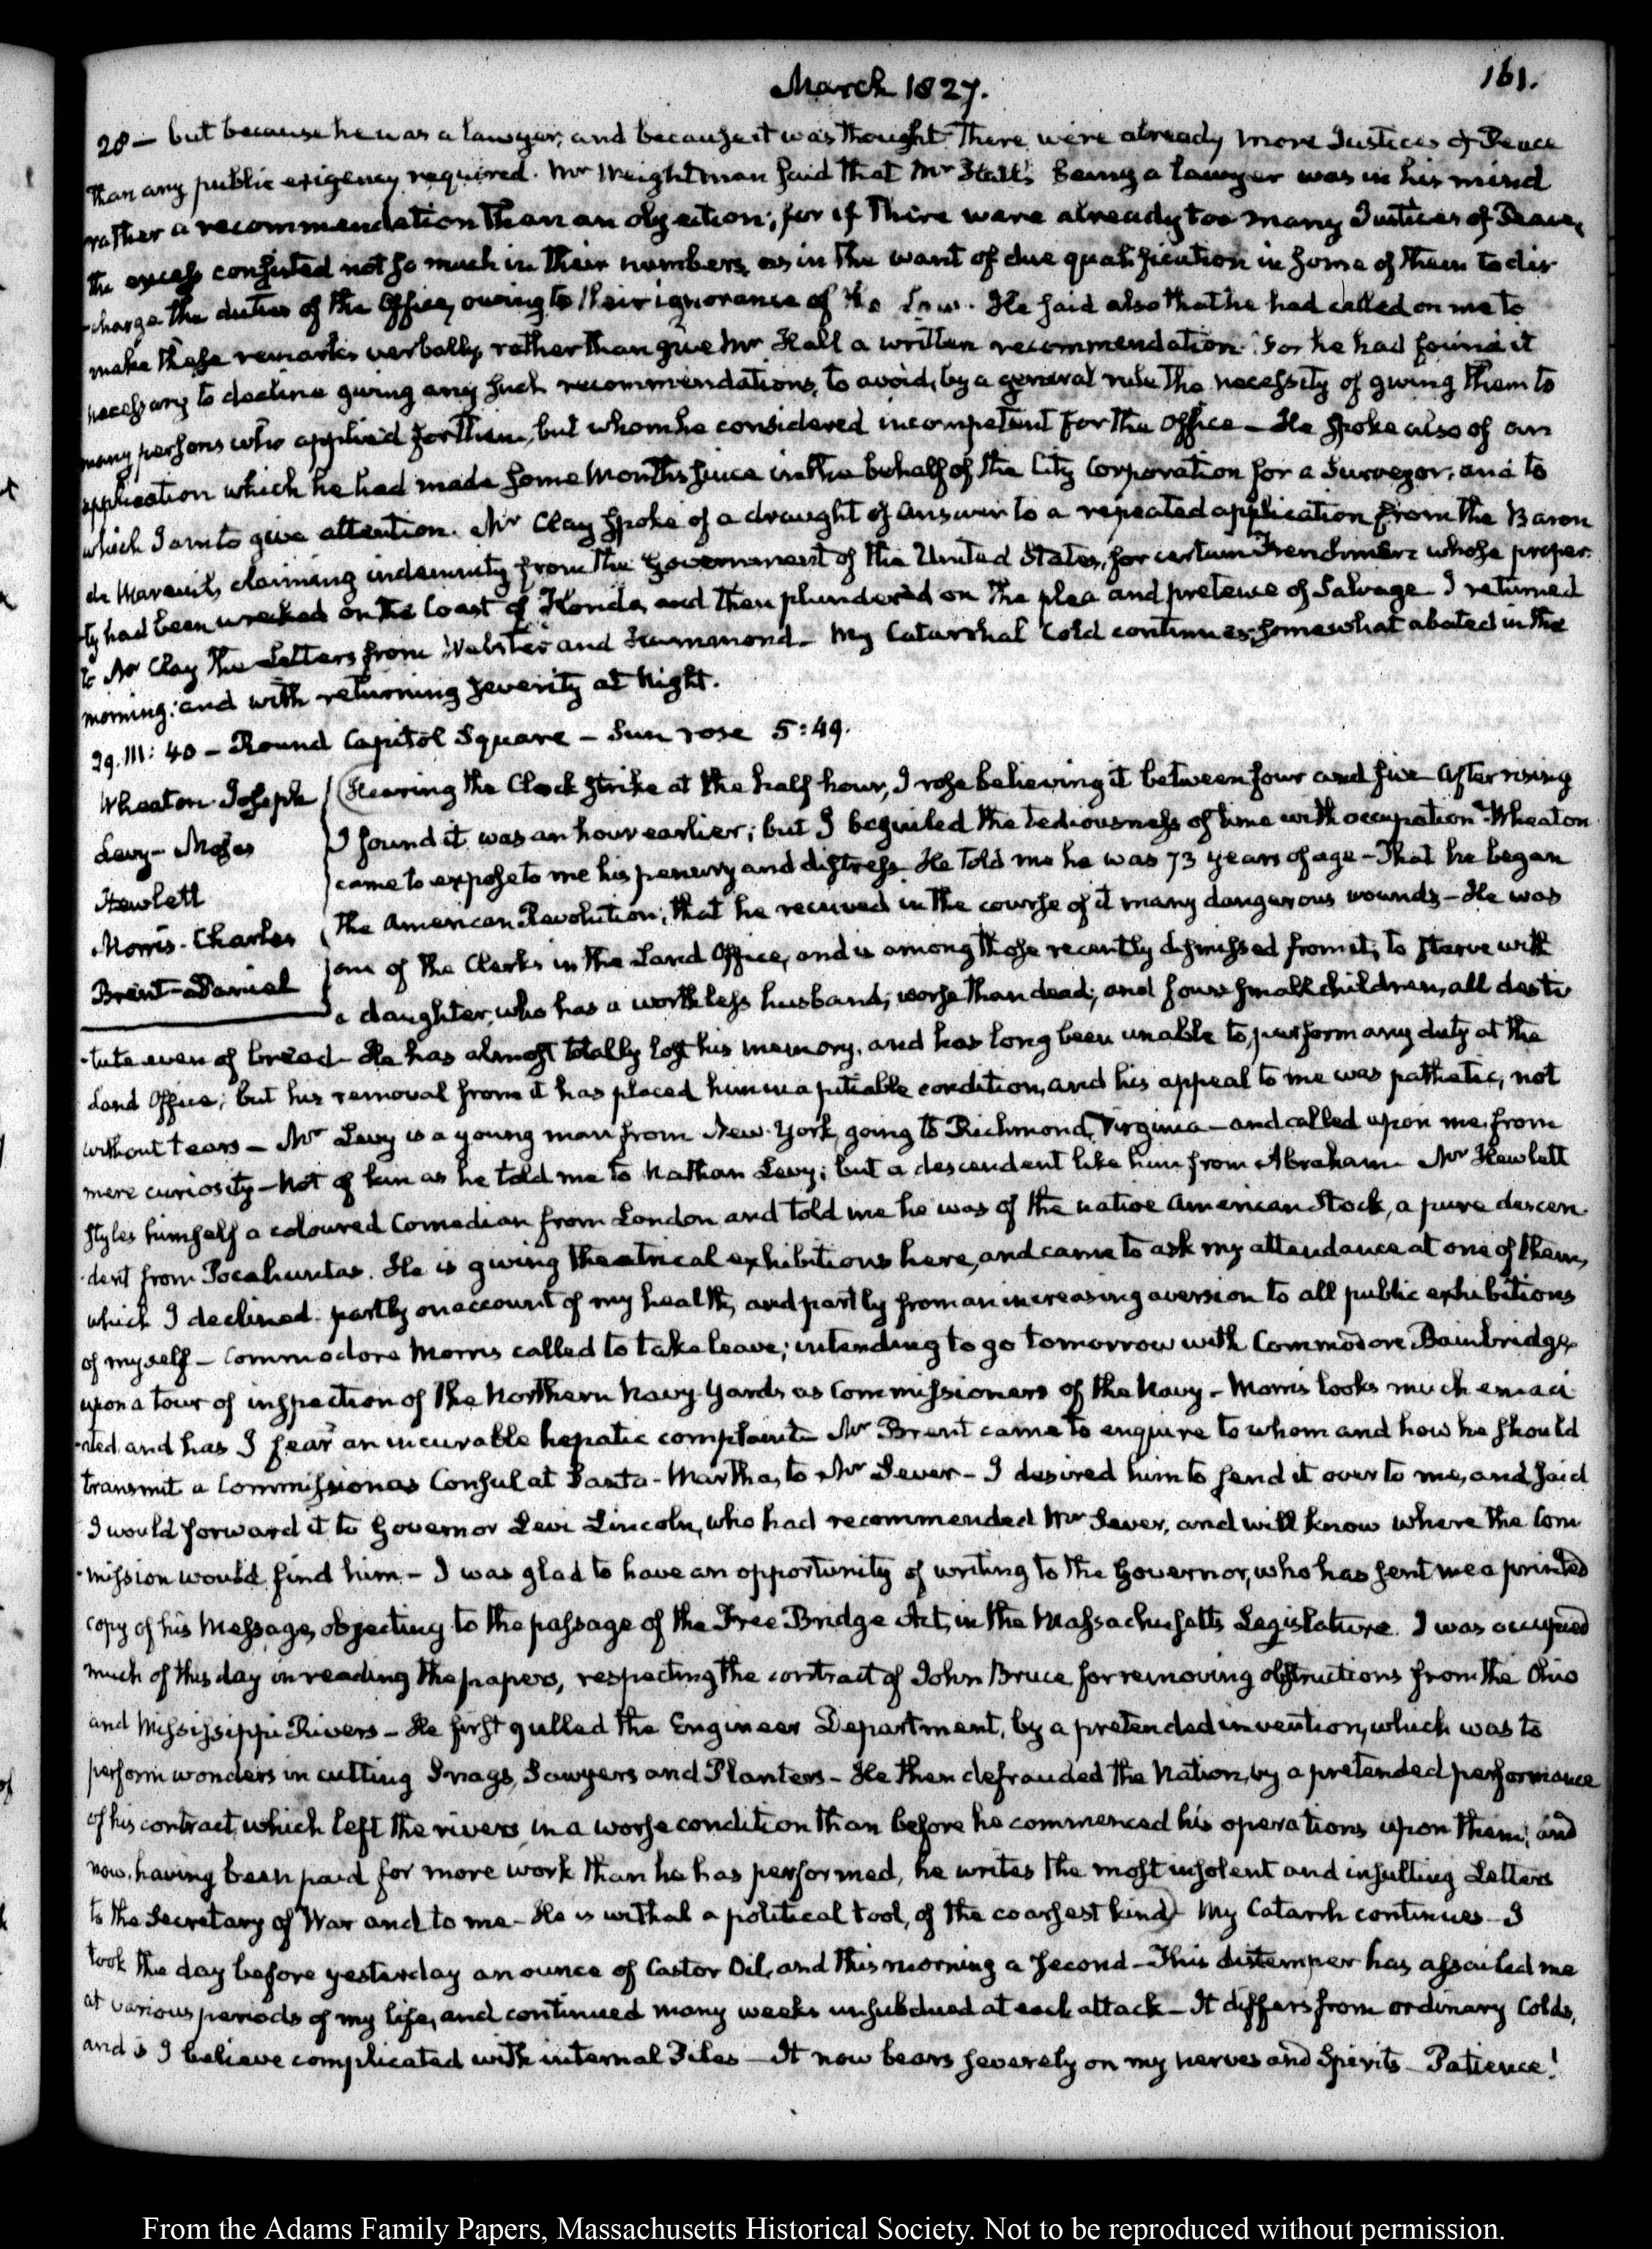 March 1827.
161.
28 — but because he was a lawyer, and because it was thought there were already more Justices of Peace
than any public exigency required. Mr Weightman said that Mr Hall's being a lawyer was in his mind
rather a recommendation than an objection; for if there were already too many Justices of Peace,
the excess consisted not so much in their numbers, as in the want of due qualification in some of them to dis
-charge the duties of the Office, owing to their ignorance of the Law. He said also that he had called on me to
make these remarks verbally, rather than give Mr Hall a written recommendation: for he had found it
necessary to decline giving any such recommendations, to avoid, by a general rule the necessity of giving them to
many persons who applied for them, but whom he considered incompetent for the Office — He spoke also of an
application which he had made some Months since in the behalf of the City Corporation for a Surveyor; and to
which I am to give attention. Mr Clay spoke of a draught of answer to a repeated application from the Baron
de Mareuil, claiming indemnity from the Government of the United States, for certain Frenchmen whose proper-
-ty had been wrecked on the Coast of Florida, and then plundered on the plea and pretence of Salvage. I returned
to Mr Clay the Letters from Webster and Hammond — My Catarrhal Cold continues; somewhat abated in the
morning: and with returning severity at Night.
29. III: 40 — Round Capitol Square — Sun rose 5:49.
Wheaton Joseph
Levy — Moses
Hewlett
Morris — Charles
Brent — Daniel
Hearing the Clock strike at the half hour, I rose believing it between four and five After rising
I found it was an hour earlier; but I beguiled the tediousness of time with occupation — Wheaton
came to expose to me his penury and distress — He told me he was 73 years of age — That he began
the American Revolution; that he received in the course of it many dangerous wounds — He was
one of the Clerks in the Land Office, and is among those recently dismissed from it, to starve with
a daughter, who has a worthless husband; worse than dead; and four small children, all desti
-tute even of bread — He has almost totally lost his memory, and has long been unable to perform any duty at the
Land Office; but his removal from it has placed him in a pitiable condition, and his appeal to me was pathetic; not
without tears — Mr Levy is a young man from New-York, going to Richmond, Virginia — and called upon me, from
mere curiosity — Not of kin as he told me to Nathan Levy; but a descendent like him from Abraham — Mr Hewlett
styles himself a coloured Comedian from London and told me he was of the native American Stock, a pure descen-
-dent from Pocahuntas. He is giving theatrical exhibitions here, and came to ask my attendance at one of them,
which I declined. partly on account of my health, and partly from an increasing aversion to all public exhibitions
of myself — Commodore Morris called to take leave; intending to go tomorrow with Commodore Bainbridge
upon a tour of inspection of the Northern Navy-Yards as Commissioners of the Navy — Morris looks much emaci
-ated and has I fear an incurable hepatic complaint — Mr Brent came to enquire to whom and how he should
transmit a Commission as Consul at Santa-Martha, to Mr Sever — I desired him to send it over to me, and said
I would forward it to Governor Levi Lincoln, who had recommended Mr Sever, and will know where the Com
-mission would find him — I was glad to have an opportunity of writing to the Governor, who has sent me a printed
copy of his Message, objecting to the passage of the Free Bridge Act, in the Massachusetts Legislature. I was occupied
much of this day in reading the papers, respecting the contract of John Bruce for removing obstructions from the Ohio
and Mississippi Rivers — He first gulled the Engineer Department, by a pretended invention, which was to
perform wonders in cutting Snags, Sawyers and Planters — He then defrauded the Nation, by a pretended performance
of his contract, which left the rivers in a worse condition than before he commenced his operations upon them; and
now, having been paid for more work than he has performed, he writes the most insolent and insulting Letters
to the Secretary of War and to me — He is withal a political tool, of the coarsest kind — My Catarrh continues — I
took the day before yesterday an ounce of Castor Oil, and this morning a second — This distemper has assailed me
at various periods of my life, and continued many weeks unsubdued at each attack — It differs from ordinary Colds,
and is I believe complicated with internal Piles — It now bears severely on my nerves and Spirits — Patience!
From the Adams Family Papers, Massachusetts Historical Society. Not to be reproduced without permission.